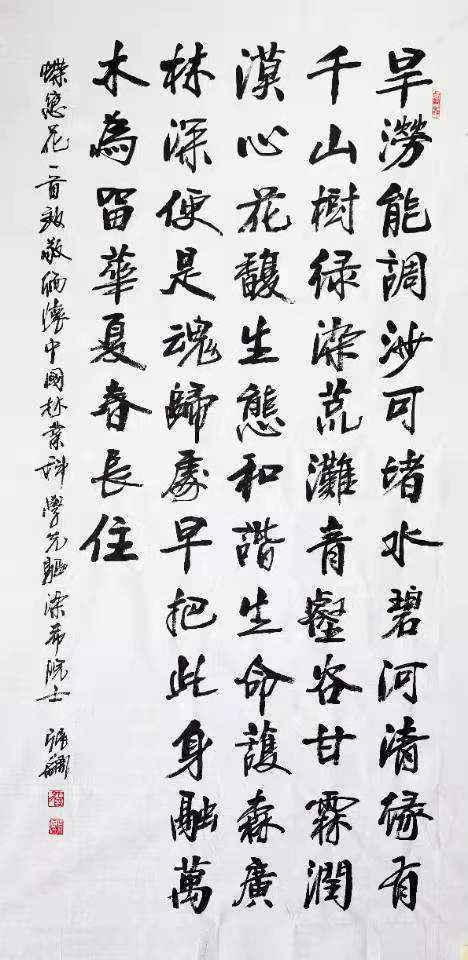 旱澇能調沙可堵水碧河清緣有
千山樹緑染荒灘青壑谷甘霖潤
漠心花馥生態和諧生命護森廣
林深便是魂歸處早把此身融萬
木為留華夏春長住
蝶戀花一首致敬緬懷中國林業科學先驅梁希院士